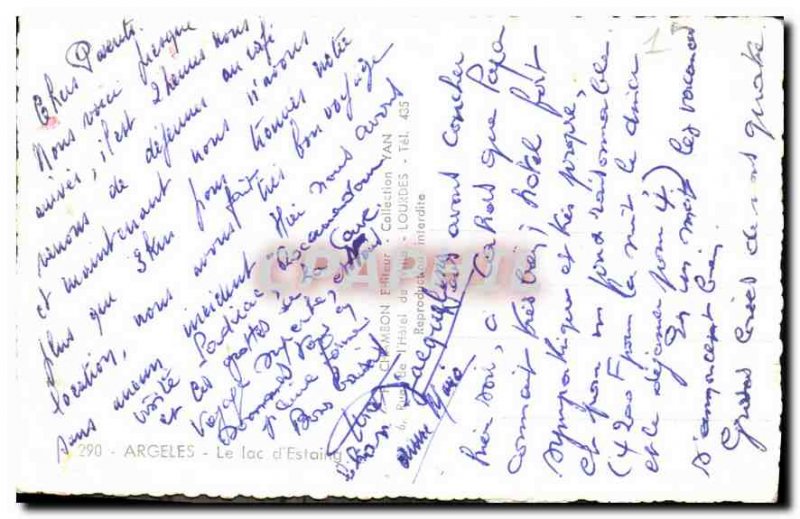 Chers Parents.
Nous voici presque
arrivés, il est 2 heures nous
venons de déjeuner au café
et maintenant nous n'avons
plus que 3 km pour trouver notre
location, nous avons fait très bon voyage
sans aucun incident. Hier nous avons
visité Padirac, Rocamadour
et les grottes de Lacave.
Voyage superbe,
sommes tous en
pleine forme
Bons baisers
Jacqueline
290 - ARGELES - Le lac d'Estaing
CHAMBON Editeur - Collection YAN
6, Rue de l'Hôtel de Ville - LOURDES - Tél. 435
Reproduction interdite
CPARAMA
Hier soir, avons coucher
à Cahors que Papa
connait très bien, hotel fort
sympathique et très propre,
et pour un prix raisonnable
(4200 F pour la nuit le diner
et le déjeuner pour 4)
En un mot les vacances
s'annoncent bien.
Grosses bises de nous quatre.
1